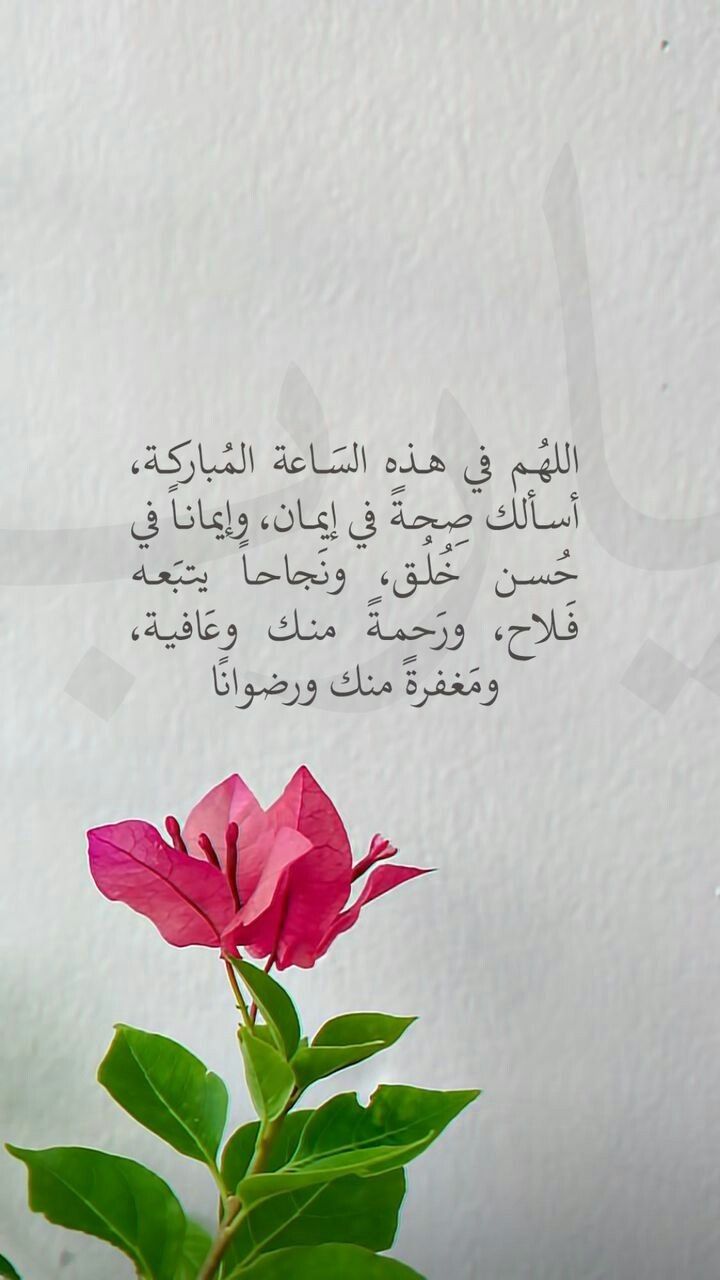 يارب
اللهُم في هذه السَاعة المُباركة،
أسألك صِحةً في إيمان، وإيماناً في
حُسن خُلُق، ونَجاحاً يتبَعه
فَلاح، ورَحمةً منك وعَافية،
ومَغفرةً منك ورضوانًا